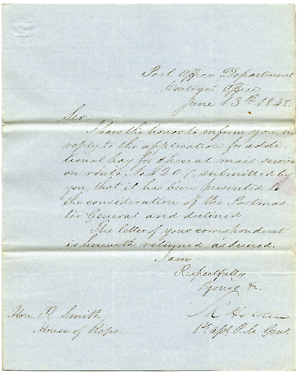 Post Office Department
Contract Office
June 13th 1848.
Sir
I have the honor to inform you, in
reply to the application for addi-
tional pay for special mail service
on route No submitted by
you, that it has been presented to
the consideration of the Postmas-
ter General and declined.
The letter of your correspondent
is herewith returned as desired.
I am
Respectfully
Yours &c
Hon R. Smith
House of Reps.
1st Asst P. M. Genl.